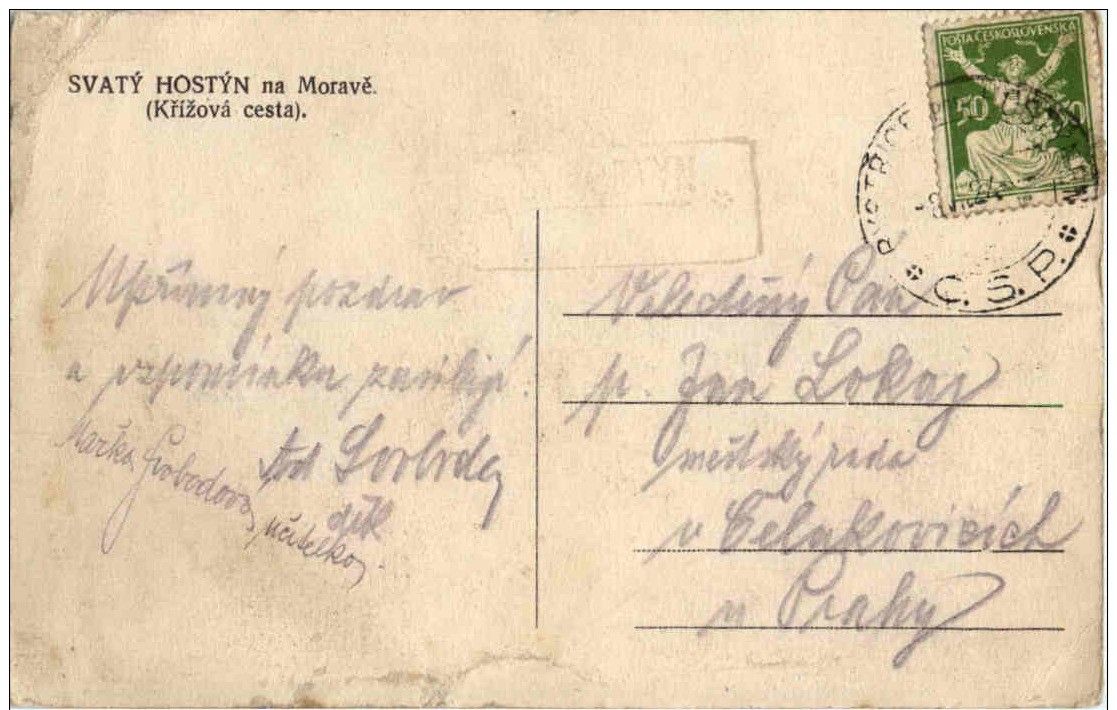 SVATÝ HOSTÝN na Moravě.
(Křížová cesta).
POŠTA ČESKOSLOVENSKÁ
50
BYSTŘICE
Č. S. P.
Upřímný pozdrav
a vzpomínku zasílají
Svoboda
Mařka Svobodová, učitelka.
Velectěný Pan
p. Jan Lokaj
městský rada
v Čelakovicích
u Prahy